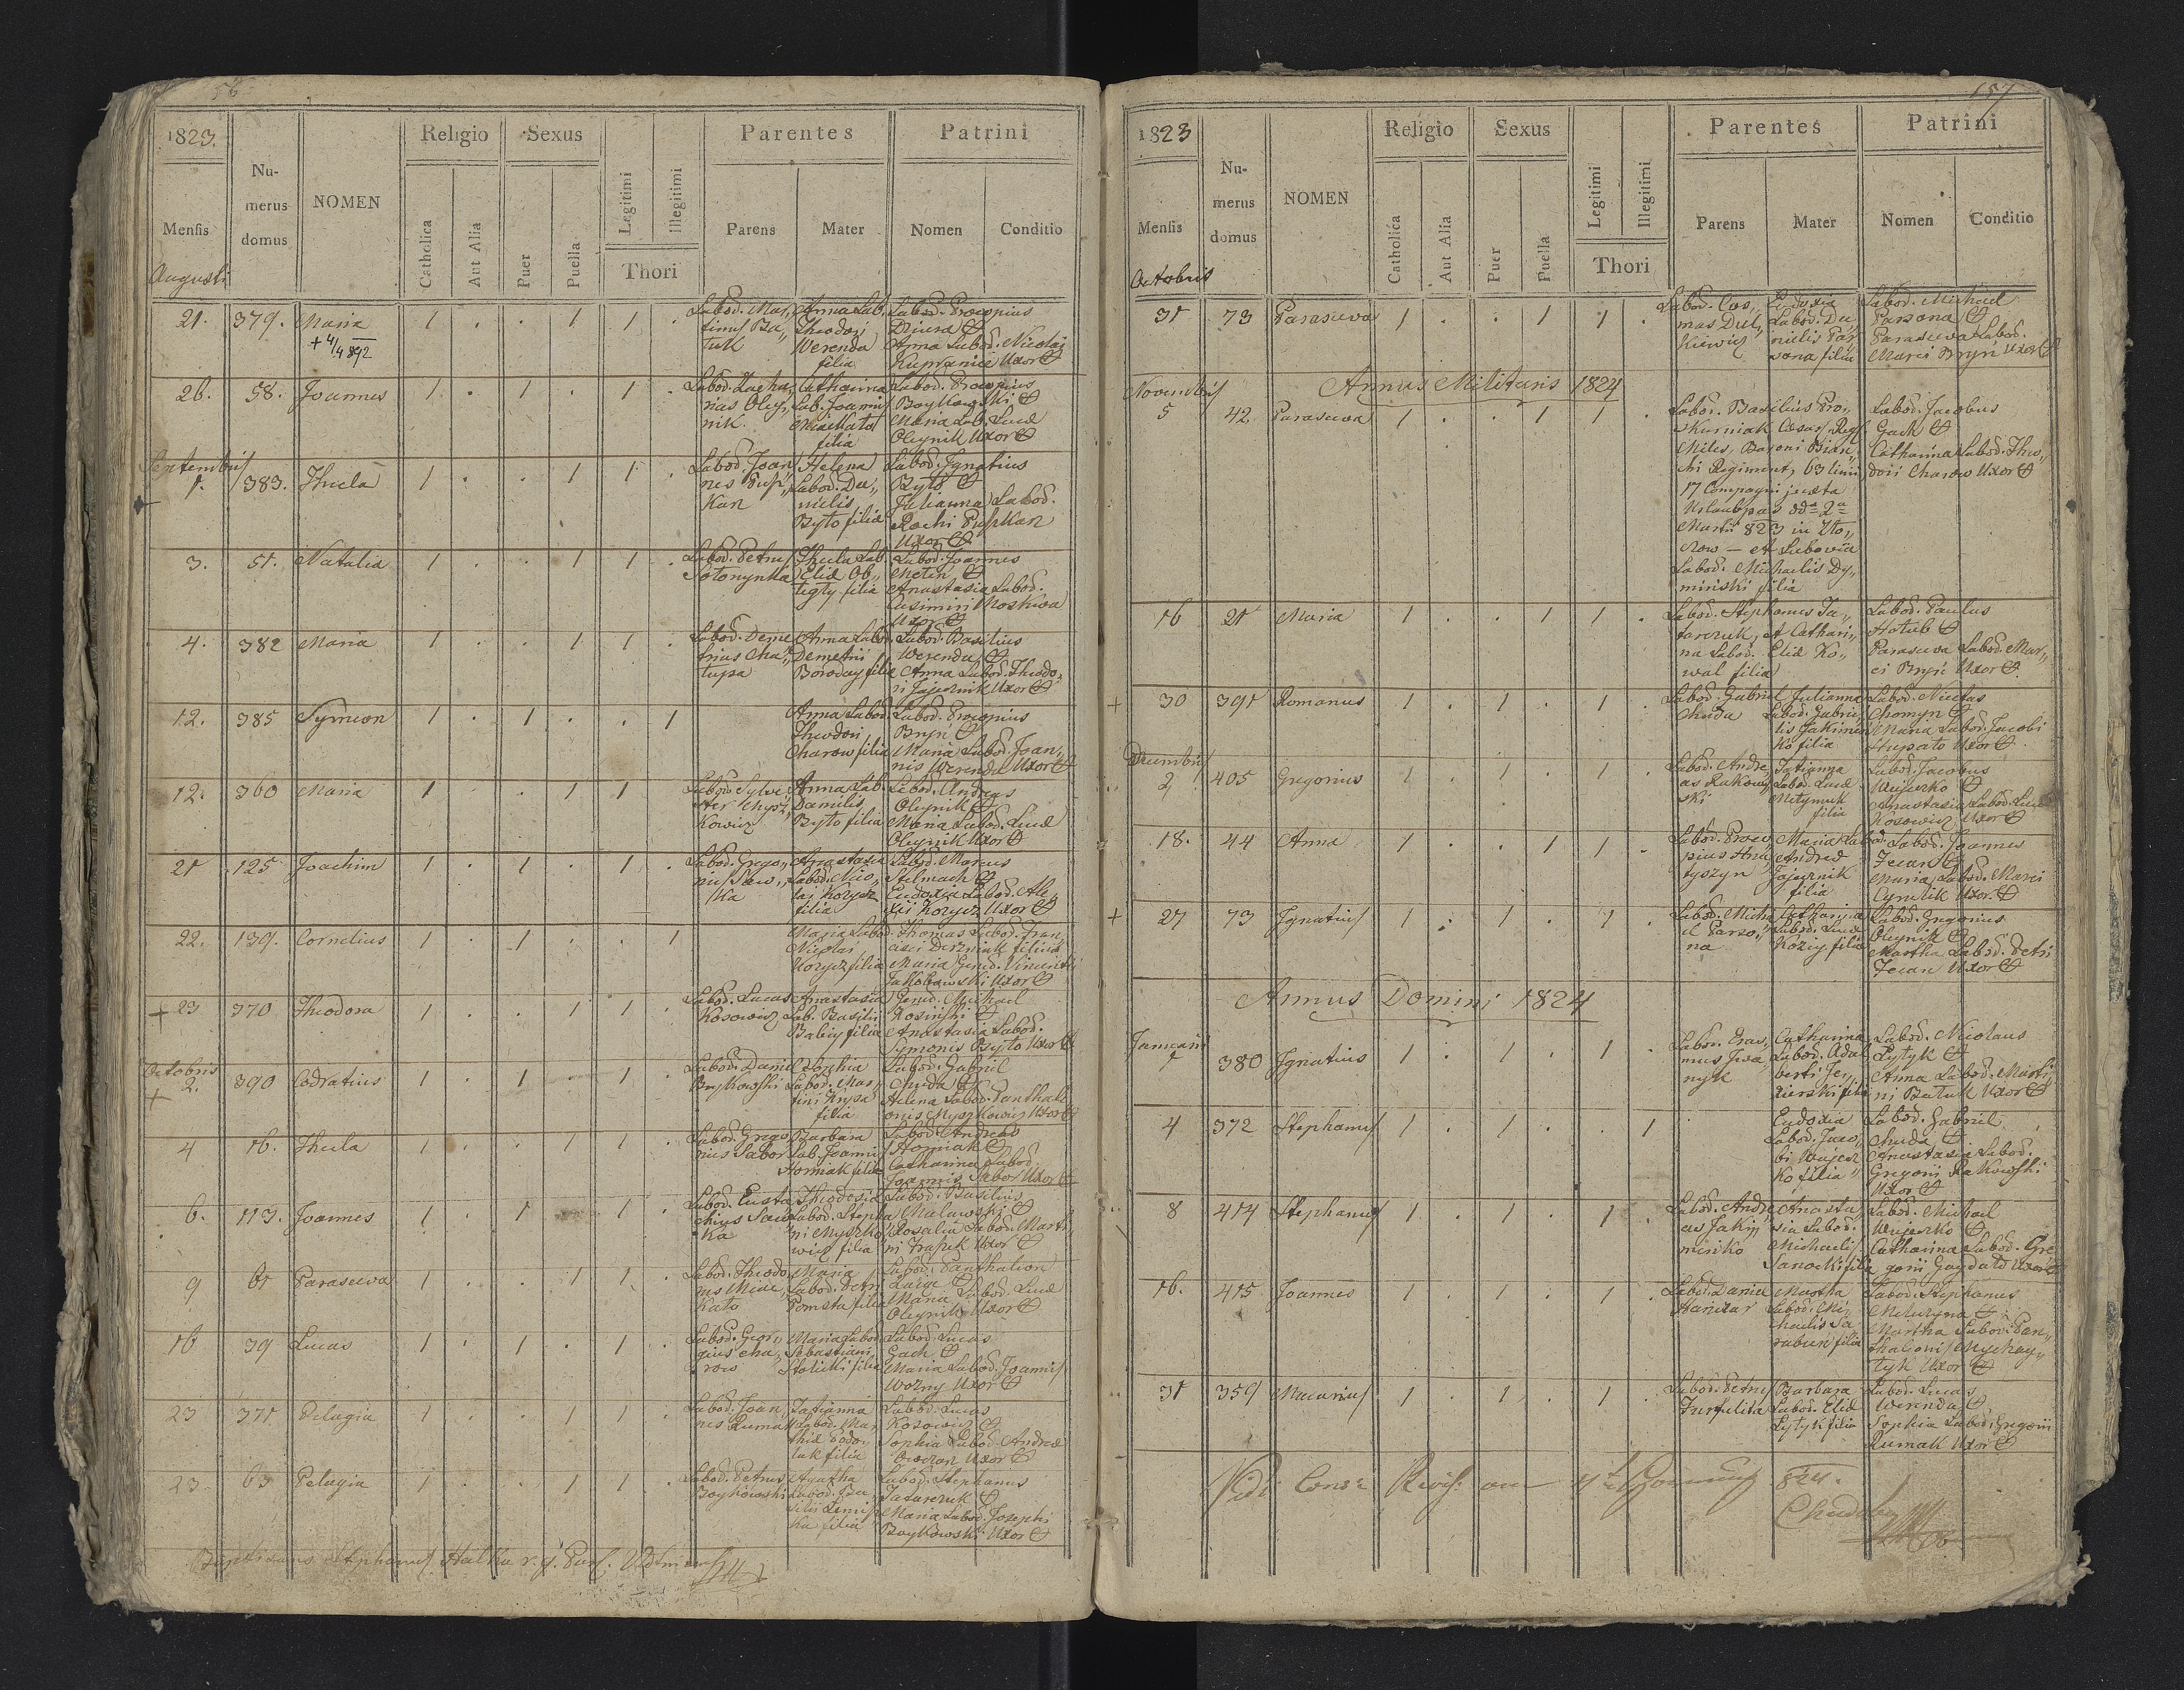 56
1823.
Mensis
Numerus domus
NOMEN
Religio
Catholica
Aut Alia
Sexus
Puer
Puella
Legitimi
Illegitimi
Thori
Parentes
Parens
Mater
Patrini
Nomen
Conditio
Augusti
21. 379. Maria 1 . . 1 1 .
+ 4/4 892
Labod. Mar,,
tinus Ba,,
tuk
Anna Lab.
Theodori
Werenda
filia
Labod. Procopius
Anna Labod. Nicolai
Uxor
26. 58. Joannes 1 . 1 . 1 .
Labod. Zacha,,
rias Oley,,
nik
Catharina
Lab. Joannis
filia
Labod. Procopius
Boykowski
Maria Lab. Lucae
Oleynik Uxor
Septembris
1. 383. Thecla 1 . . 1 1 .
Labod. Joan
nes Pup,,
kan
Helena
Labod. Da,,
nielis
Byto filia
Labod. Ignatius
Byto
Julianna Labod.
Rochi Pupkan
Uxor
3. 51. Natalia 1 . . 1 1 .
Labod. Petrus
Thecla Lab.
Eliae Ob,,
tegty filia
Labod. Joannes
Anastasia Labod.
Casimiri Moskwa
Uxor
4. 382 Maria 1 . . 1 1 .
Labod. Deme
trius Cha,,
tupa
Anna Labod.
Demetrii
Boroday filia
Labod. Basilius
Werenda
Anna Labod. Theodo,,
ri Jajecznik Uxor
12. 385 Symeon 1 . 1 . . 1
Anna Labod.
Theodori
Charow filia
Labod. Procopius
Bryn
Maria Labod. Joan,,
nis Werenda Uxor
12. 360 Maria 1 . . 1 1 .
Labod. Sylve
ster Mysz,,
kowicz
Anna Lab.
Danielis
Byto filia
Labod. Andreas
Oleynik
Maria Labod. Lucae
Oleynik Uxor
21 125 Joachim 1 . 1 . 1 .
Labod. Grego,,
rius Saw,,
ka
Anastasia
Labod. Nico,,
lai Korycz
filia
Labod. Marcus
Stelmach
Eudoxia Labod. Ale
xii Korycz Uxor
22. 139. Cornelius 1 . 1 . . 1
Maria Labod.
Nicolai
Korycz filia
Thomas Labod. Fran,,
cisci Derzniak filius
Maria Gened. Vincentii
Jakobowski Uxor
+ 23 370 Theodora 1 . . 1 1 .
Labod. Lucas
Kosowicz
Anastasia
Lab. Basilii
Babiy filia
Gened. Michael
Kosinski
Anastasia Labod.
Symonis Byto Uxor
Octobris
+ 2. 390 Codratius 1 . 1 . 1 .
Labod. Daniel
Boykowski
Sophia
Labod. Mar,,
tini Krysa
filia
Labod. Gabriel
Chuda
Helena Labod. Panthale
onis Myszkowicz Uxor
4 16. Thecla 1 . . 1 1 .
Labod. Grego,,
rius Sabor
Barbara
Lab. Joannis
Horniak filia
Labod. Andreas
Horniak
Catharina Labod.
Joannis Sabor Uxor
6. 113. Joannes 1 . 1 . 1 .
Labod. Eusta,,
chius Saw
ka
Theodosia
Labod. Stepha
ni Myszko,,
wicz filia
Labod. Basilius
Malawski
Rosalia Labod. Marti,,
ni Uxor
9 61 Parascewa 1 . . 1 1 .
Labod. Theodo
rus
Maria
Labod. Petri
Pomsta filia
Labod. Panthaleon
Maria Labod. Lucae
Oleynik Uxor
16 39 Lucas 1 . 1 . 1 .
Labod. Geor,,
gius Cha,,
row
Maria Labod.
Sebastiani
Stolicki filia
Labod. Lucas
Gach
Maria Labod. Joannis
Wozny Uxor
23 371. Pelagia 1 . . 1 1 .
Labod. Joan
nes Rumak
Tatianna
Labod. Mat,,
thiae Podo,,
lak filia
Labod. Lucas
Kosowicz
Sophia Labod. Andreae
Owczar Uxor
23. 63 Pelagia 1 . . 1 1 .
Labod. Petrus
Boykowski
Agatha
Labod. Ba
silii
filia
Labod. Stephanus
Tatarczuk
Maria Labod. Josephi
Boykowski Uxor
Baptisans Stephanus Halka
157
1823
Mensis
Numerus domus
NOMEN
Religio
Catholica
Aut Alia
Sexus
Puer
Puella
Legitimi
Illegitimi
Thori
Parentes
Parens
Mater
Patrini
Nomen
Conditio
Octobris
31 73 Parascewa 1 . . 1 1 .
Labod. Cos,,
mas Dut,,
kiewicz
Eudoxia
Labod. Da,,
nielis Par
sona filia
Labod. Michael
Parsona
Parascewa Labod.
Marci Bryn Uxor
Novembris
Annus Militaris 1824
5 42. Parascewa 1 . . 1 1 .
Labod. Basilius Pro,,
skurniak Caesar. Reg.
Miles, Baroni Bian,,
chi Regiment, 63 linii
17 Compagni juxta
Urlaubpas dda 2a
Martii 823 in Zto,,
czow — et Lubowia
Labod. Michaelis Dy,,
minski filia
Labod. Jacobus
Gach
Catharina Labod. Theo,,
dori Charow Uxor
16 21 Maria 1 . . 1 1 .
Labod. Stephanus Ta,,
tarczuk, et Cathari,,
na Labod. Eliae Ko,,
wal filia
Labod. Paulus
Hotub
Parascewa Labod. Mar,,
ci Bryn Uxor
+ 30 391 Romanus 1 . 1 . 1 .
Labod. Gabriel
Chuda
Julianna
Labod. Gabrie,,
lis Jakimin
ko filia
Labod. Nicetas
Chomyn
Maria Labod. Jacobi
Stupato Uxor
Decembris
2 405 Gregorius 1 . 1 . 1 .
Labod. Andre,,
as Rakow,,
ski
Tatianna
Labod. Lucae
filia
Labod. Jacobus
Wujeczko
Anastasia Labod. Lucae
Kosowicz Uxor
18. 44 Anna 1 . . 1 1 .
Labod. Proco,,
pius Hna
tyszyn
Maria Labod.
Andreae
Jajecznik
filia
Labod. Joannes
Fecan
Maria Labod. Marci
Cymelik Uxor
+ 27 73 Ignatius 1 . 1 . 1 .
Labod. Micha
el Parso,,
na
Catharina
Labod. Lucae
Koziy filia
Labod. Gregorius
Oleynik
Martha Labod. Petri
Fecan Uxor
Annus Domini 1824
Januarii
1 380 Ignatius 1 . 1 . 1 .
Labod. Eras,,
mus Iwa,,
nyk
Catharina
Labod. Adal
berti Je,,
zierski filia
Labod. Nicolaus
Lytyk
Anna Labod. Marti,,
ni Batuk Uxor
4 372 Stephanus 1 . 1 . . 1
Eudoxia
Labod. Jaco,,
bi Wujecz
ko filia
Labod. Gabriel
Chuda
Anastasia Labod.
Gregorii Rakowski
Uxor
8 414 Stephanus 1 . 1 . 1 .
Labod. Andre
as Jakiy
minko
Anasta,,
sia Labod.
Michaelis
Sanocki filia
Labod. Michael
Wujeczko
Catharina Labod. Gre
gorii Gaydata Uxor
16. 415 Joannes 1 . 1 . 1 .
Labod. Daniel
Hanczar
Martha
Labod. Mi,,
chaelis Sa
rabun filia
Labod. Stephanus
Martha Labod. Pan,,
thaleonis Mychay,,
tyk Uxor
31 359 Macarius 1 . 1 . 1 .
Labod. Petrus
Barbara
Labod. Eliae
Lytyk filia
Labod. Lucas
Werenda
Sophia Labod. Gregorii
Rumak Uxor
Vidi
824.